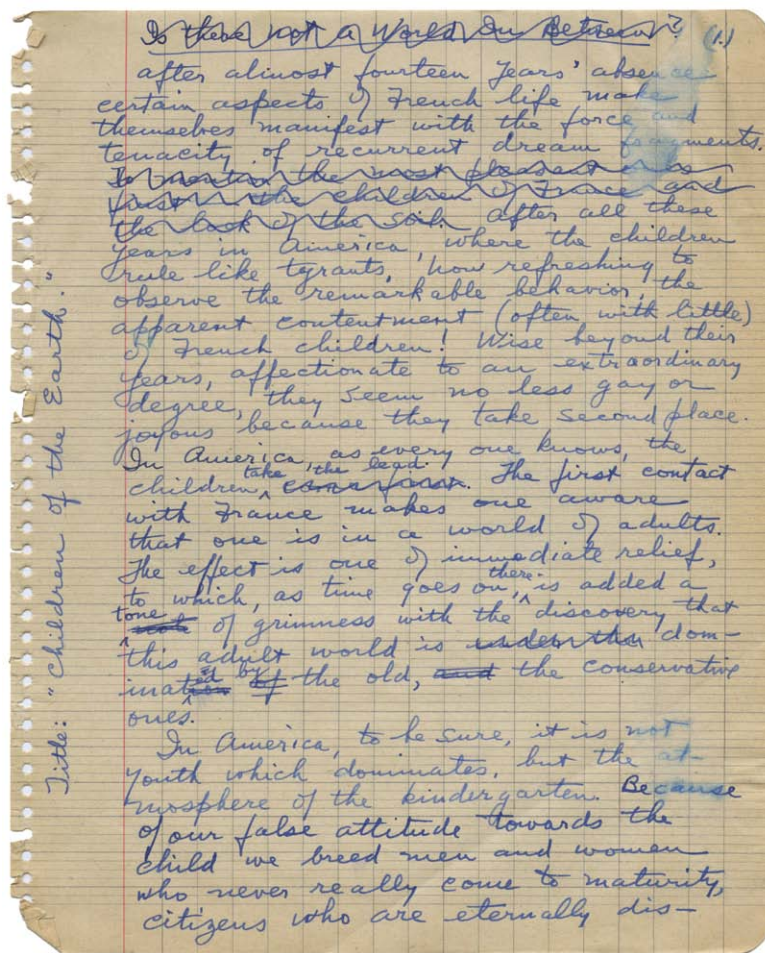 Is there not a World In Between? (1.)
After almost fourteen years' absence
certain aspects of French life make
themselves manifest with the force and
tenacity of recurrent dream fragments.
To mention the most pleasant ones
first — the children of France and
the look of the soil. After all these
years in America, where the children
rule like tyrants, how refreshing to
observe the remarkable behavior, the
apparent contentment (often with little)
of French children! Wise beyond their
years, affectionate to an extraordinary
degree, they seem no less gay or
joyous because they take second place.
In America, as every one knows, the
children take the lead. come first. The first contact
with France makes one aware
that one is in a world of adults.
The effect is one of immediate relief,
to which, as time goes on, there is added a
tone note of grimness with the discovery that
this adult world is under the dom-
inated by ion of the old, and the conservative
ones.
In America, to be sure, it is not
youth which dominates, but the at-
mosphere of the kindergarten. Because
of our false attitude towards the
child we breed men and women
who never really come to maturity,
citizens who are eternally dis-
Title: "Children of the Earth."